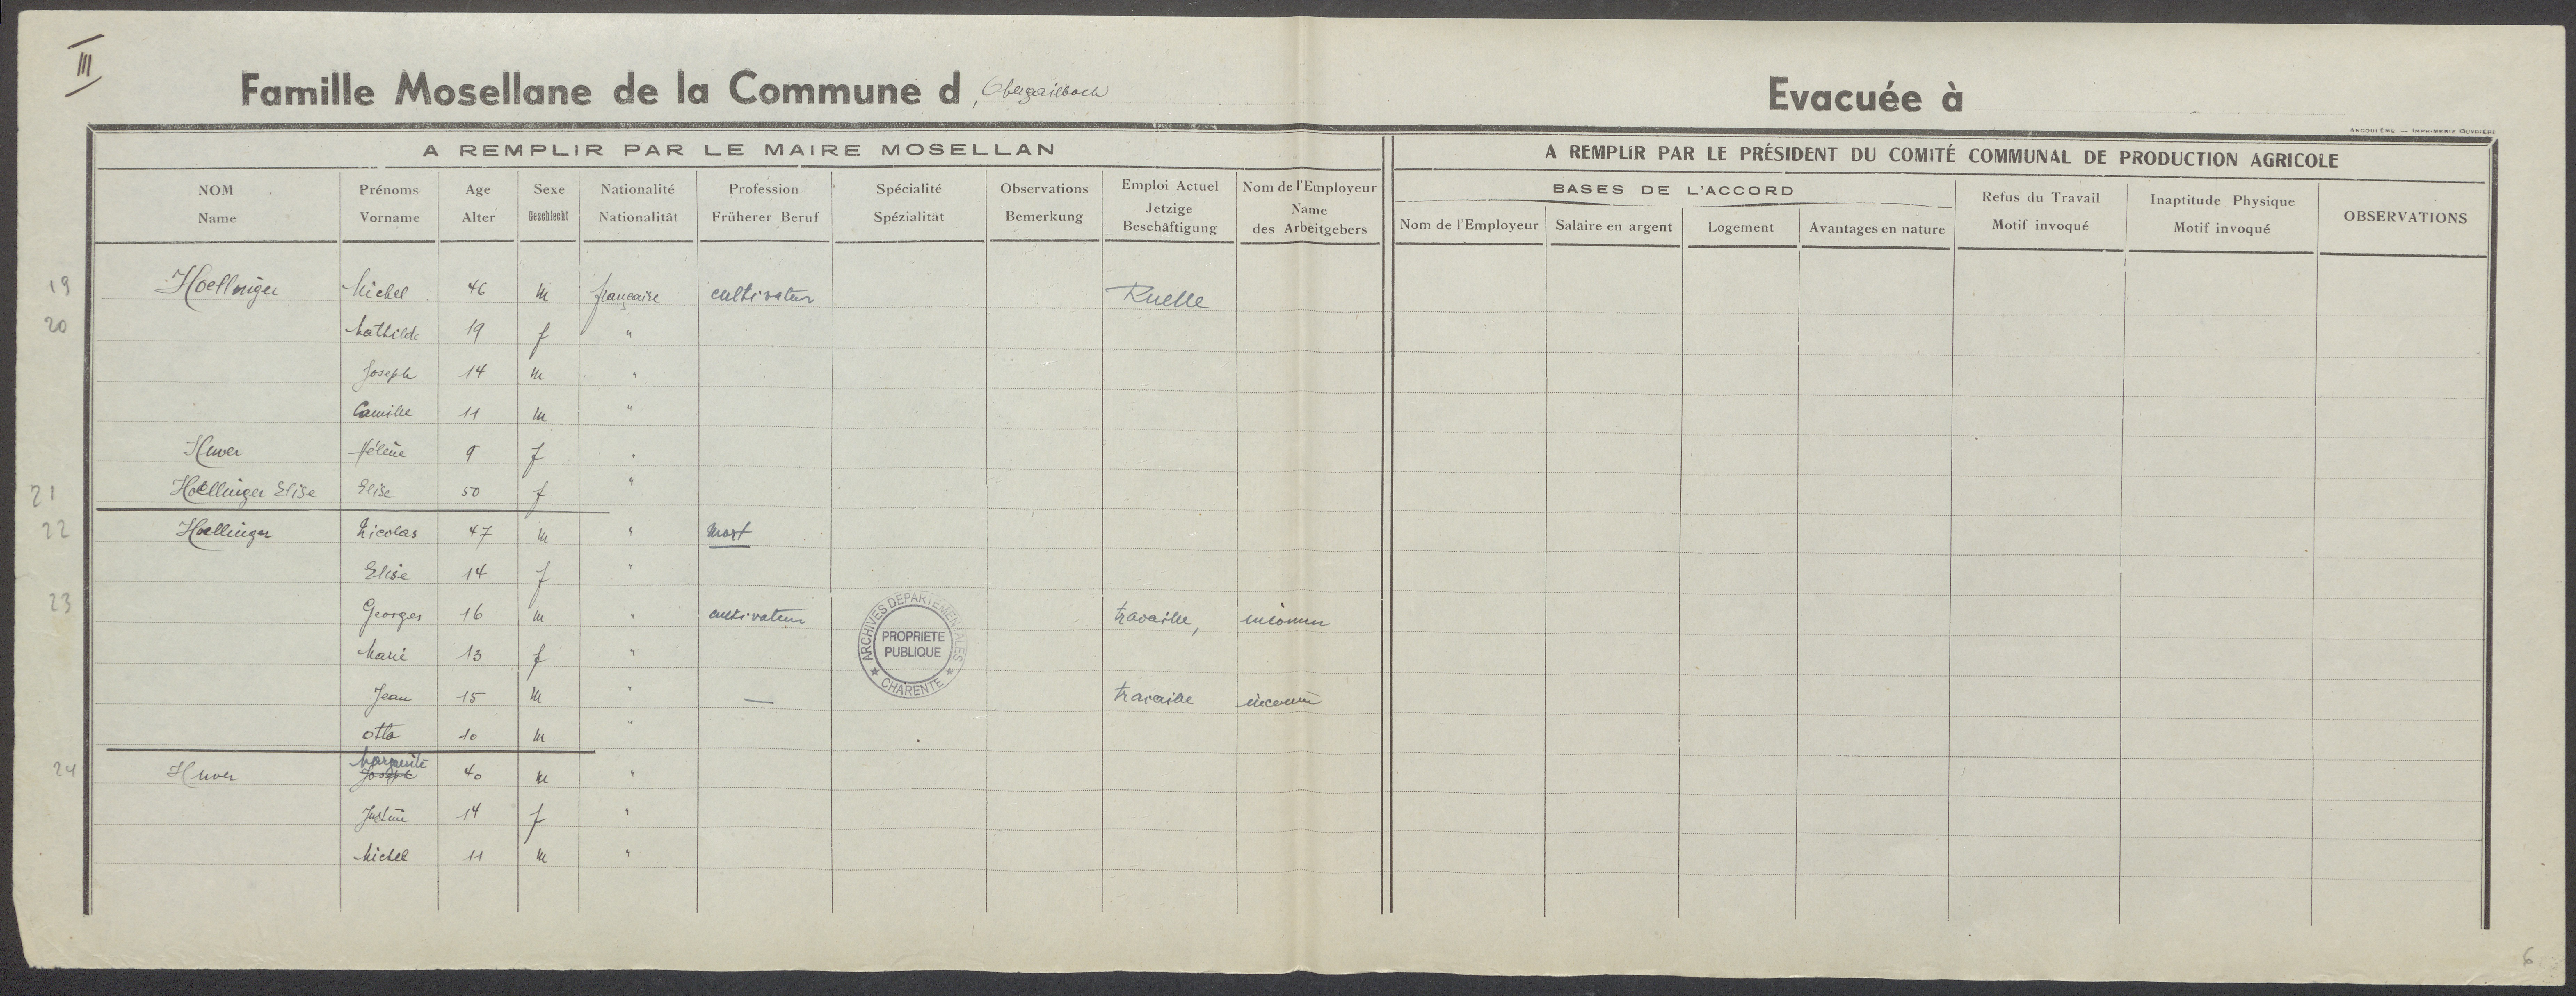 III
Famille Mosellane de la Commune d'Obergailbach
Evacuée à
ANGOULÊME — IMPRIMERIE OUVRIÈRE
A REMPLIR PAR LE MAIRE MOSELLAN
A REMPLIR PAR LE PRÉSIDENT DU COMITÉ COMMUNAL DE PRODUCTION AGRICOLE
NOM Prénoms Age Sexe Nationalité Profession Spécialité Observations Emploi Actuel Nom de l'Employeur
Name Vorname Alter Geschlecht Nationalität Früherer Beruf Spézialität Bemerkung Jetzige Beschäftigung Name des Arbeitgebers
BASES DE L'ACCORD
Nom de l'Employeur Salaire en argent Logement Avantages en nature
Refus du Travail Motif invoqué
Inaptitude Physique Motif invoqué
OBSERVATIONS
19 Hoellinger Michel 46 m française cultivateur Ruelle
20 Mathilde 19 f "
Joseph 14 m "
Camille 11 m "
Huver Hélène 9 f "
21 Hoellinger Elise Elise 50 f "
22 Hoellinger Nicolas 47 m " mort
Elise 14 f "
23 Georges 16 m " cultivateur travaille, inconnu
Marie 13 f "
Jean 15 m " — travaille inconnu
Otto 10 m "
24 Huver Joseph Marguerite 40 m "
Justine 14 f "
Michel 11 m "
ARCHIVES DEPARTEMENTALES
PROPRIETE
PUBLIQUE
★ CHARENTE ★
6